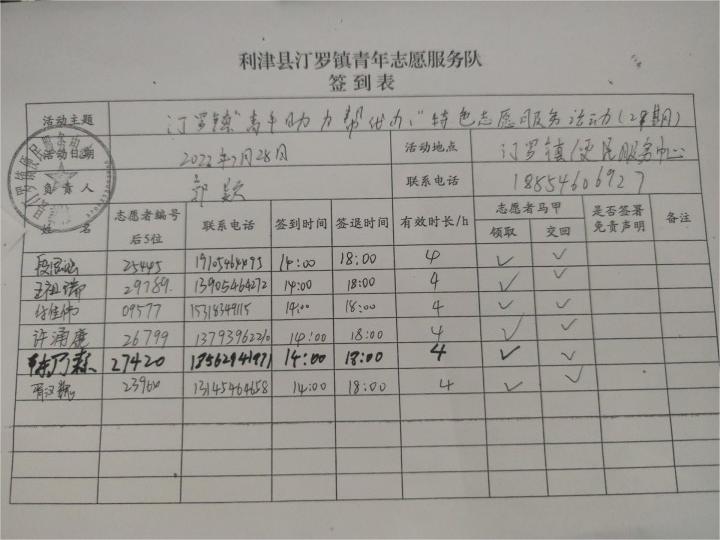 利津县汀罗镇青年志愿服务队
签到表
活动主题 汀罗镇"青年助力 帮代办"特色志愿服务活动(28期)
活动日期 2022年7月28日 活动地点 汀罗镇便民服务中心
负责人 郭 联系电话 18554606927
姓名 志愿者编号后5位 联系电话 签到时间 签退时间 有效时长/h 志愿者马甲 领取 交回 是否签署免责声明 备注
25445 19105464493 14:00 18:00 4 ✓ ✓
王祖瑞 29789 13905464272 14:00 18:00 4 ✓ ✓
付佳伟 09577 15318349115 14:00 18:00 4 ✓ ✓
许涌鹿 26799 13793962210 14:00 18:00 4 ✓ ✓
陈乃森 27420 18562941971 14:00 18:00 4 ✓ ✓
胥汉巍 23960 13145464658 14:00 18:00 4 ✓ ✓